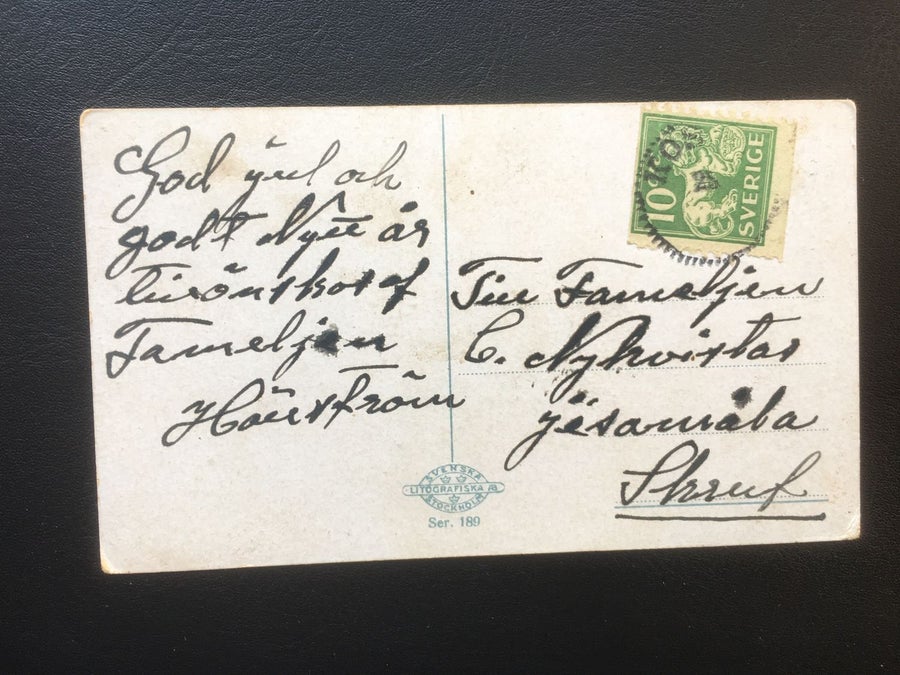 God jul och
godt Nytt år
tillönskas af
Fameljen
Till Fameljen
C. Nykvistas
Skruf
10
SVERIGE
SVENSKA
LITOGRAFISKA AB
STOCKHOLM
Ser. 189